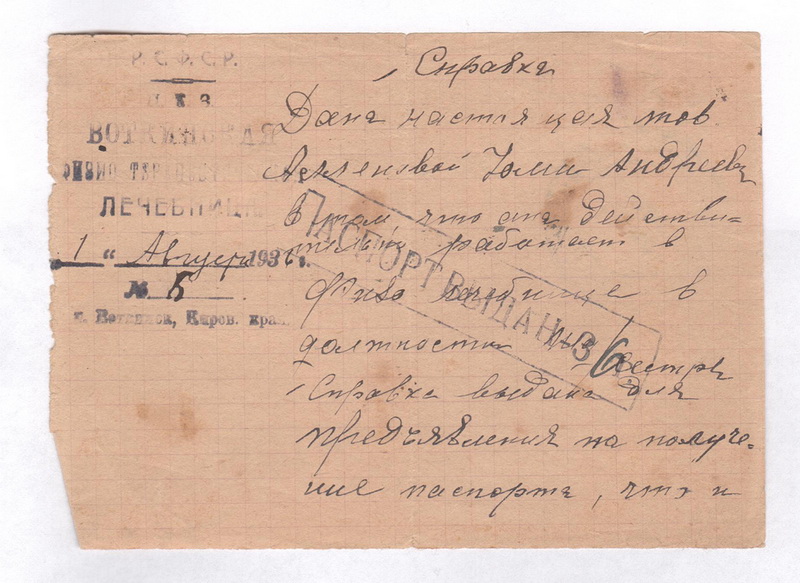 Р. С. Ф. С. Р.
Н. К. З.
ВОТКИНСКАЯ
ФИЗИО
ЛЕЧЕБНИЦА
1 " Август 193 г.
№ 5
г. Воткинск, Киров. края
Справка
Дана настоящая тов.
Юлии Андреевн
в том что она действи-
тельно работает в
Физио лечебнице в
должности сестры
Справка выдана для
предъявления на получе-
ние паспорта, что и
ПАСПОРТ ВЫДАН З 6